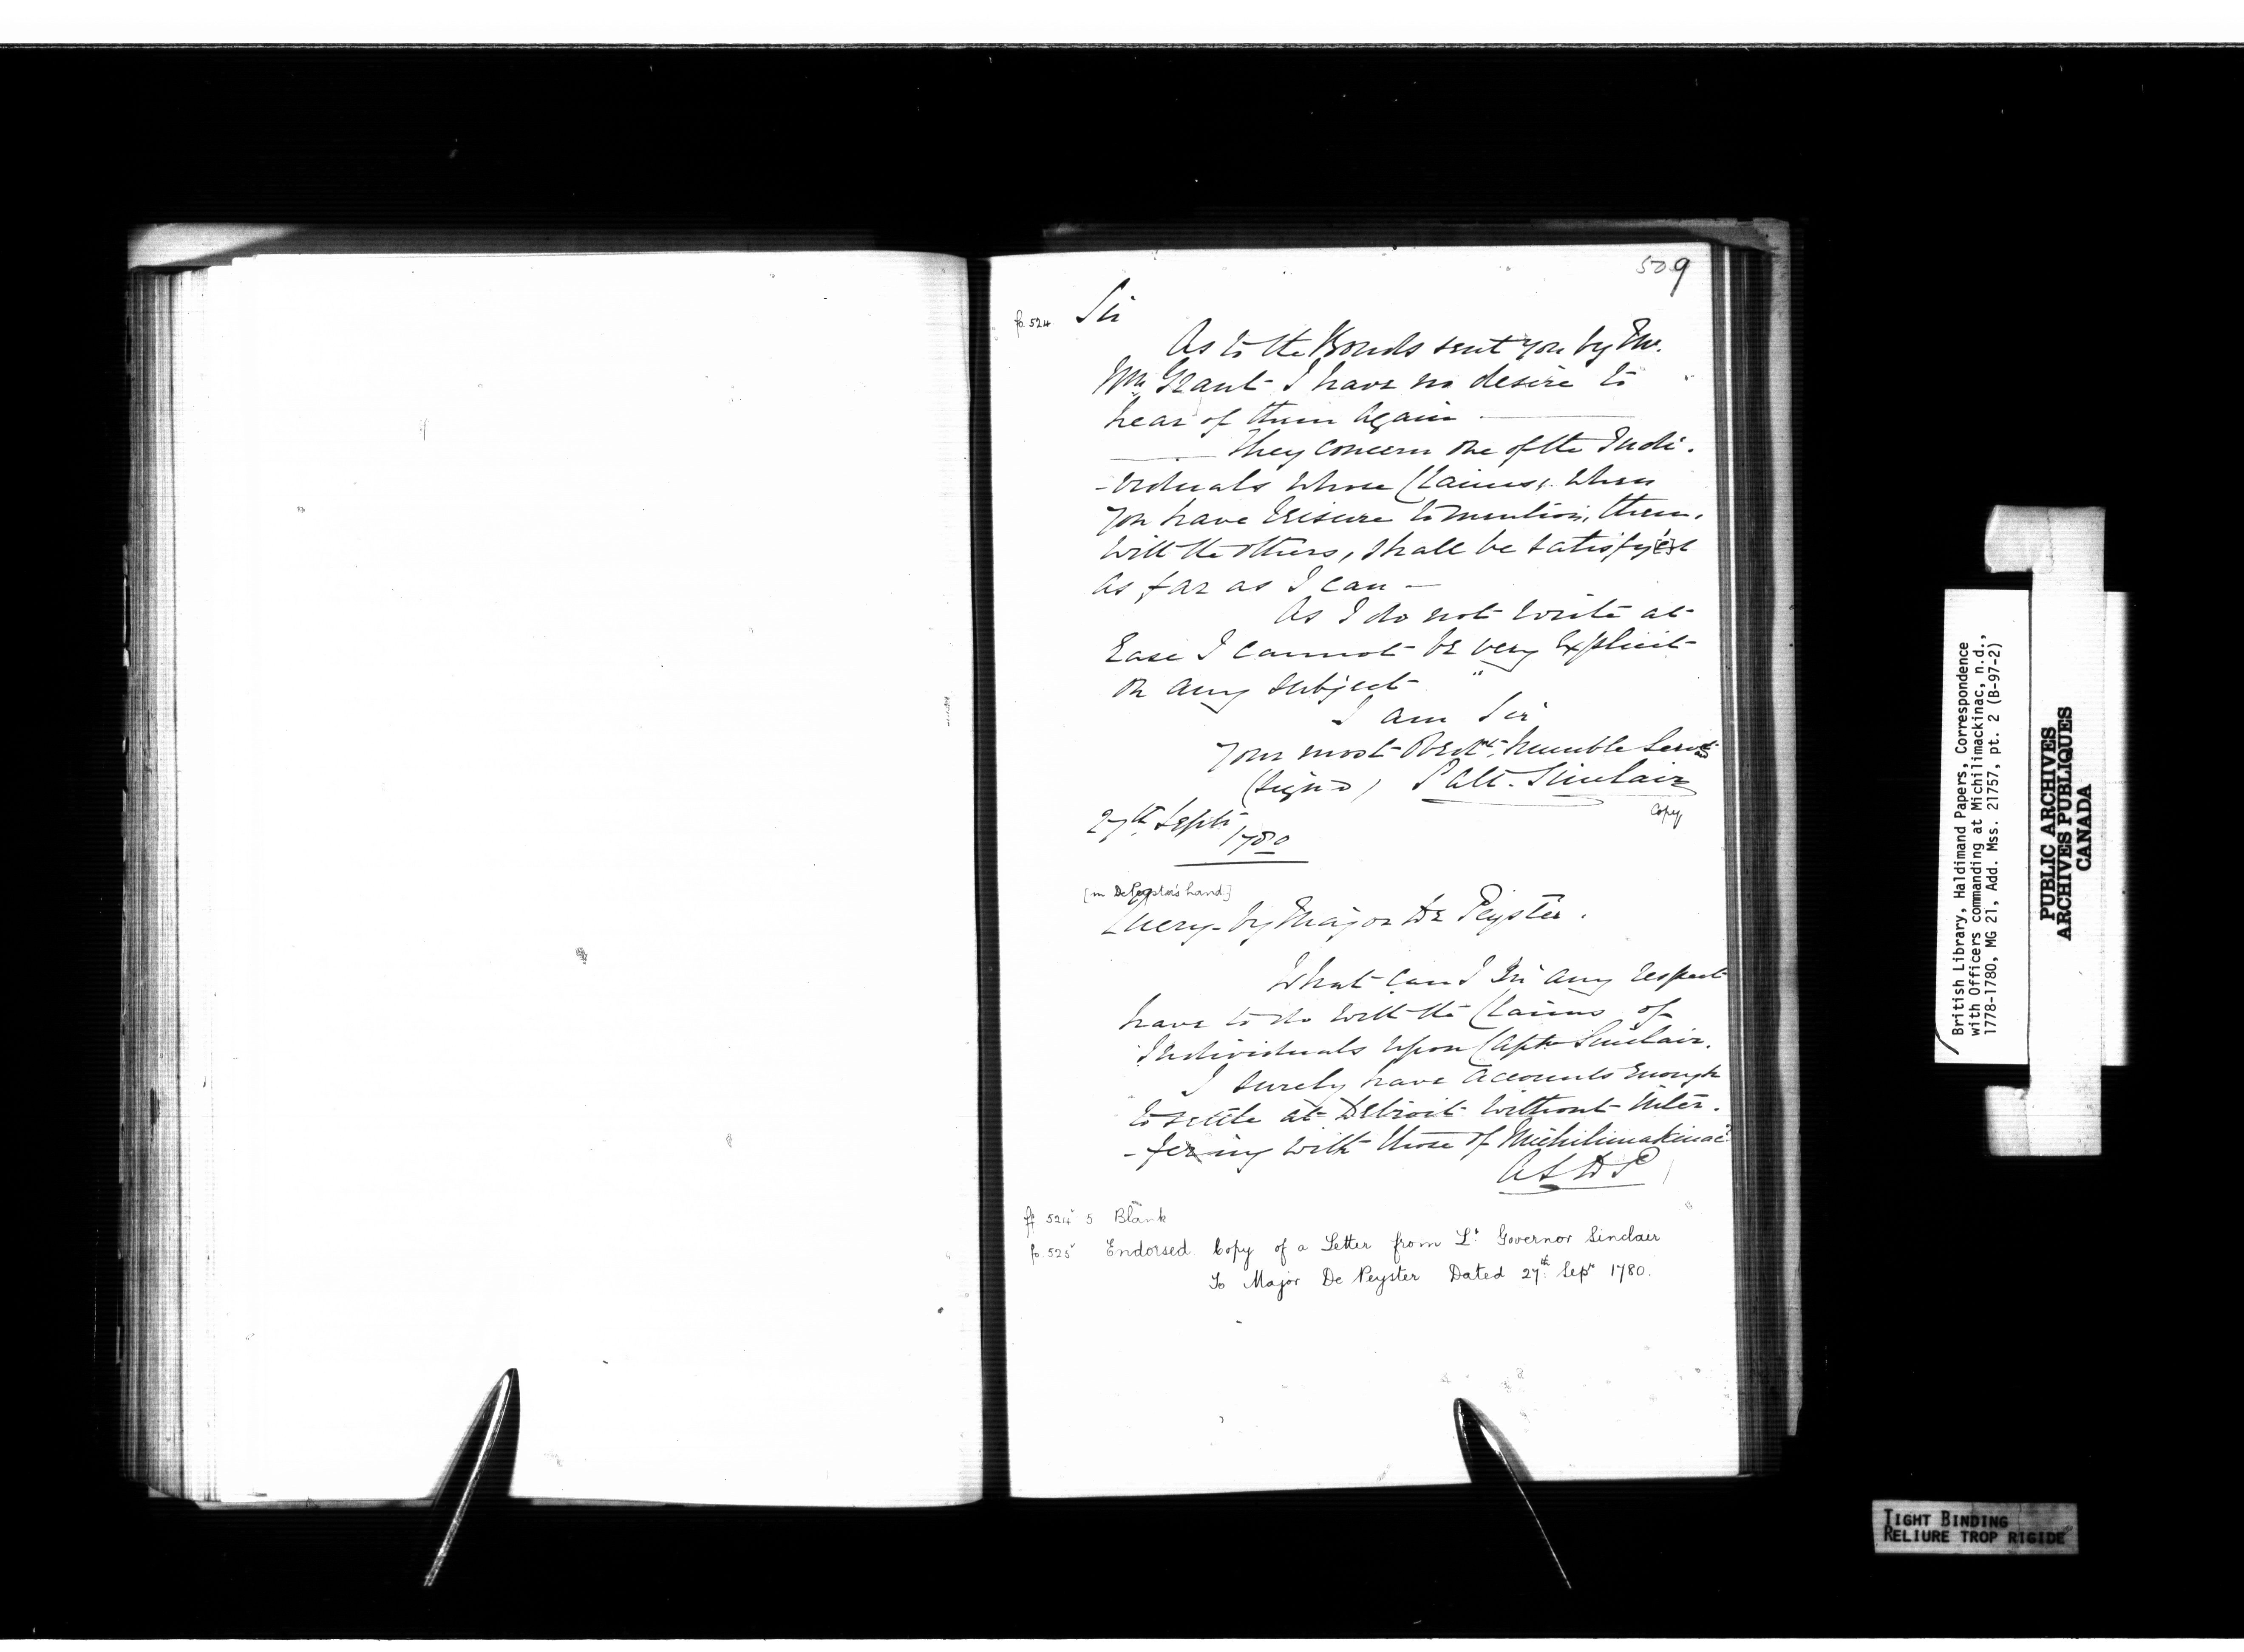 509
fo. 524 Sir
As to the Bonds sent you by Mr.
Wm Grant I have no desire to
hear of them again
They concern one of the Indi-
-viduals whose Claims, when
you have leisure to mention, them,
with the others, shall be satisfy[e]d
as far as I can -
As I do not write at
Ease I cannot be very Explicit
on any subject
I am Sir
Your most Obedt. humble Servt
(Sign'd) Patt. Sinclair
Copy
27th Septr
1780
[in DePeyster's hand]
Query by Major De Peyster.
What can I in any respect
have to do with the Claims of
Individuals upon Capt Sinclair.
I surely have accounts Enough
to settle at Detroit without inter-
-fering with those of Michilimakinac
A S D P
ff 524v 5 Blank
fo. 525v Endorsed Copy of a Letter from Lt. Governor Sinclair
To Major De Peyster Dated 27th Sepr 1780.
British Library, Haldimand Papers, Correspondence
with Officers commanding at Michilimackinac, n.d.,
1778-1780, MG 21, Add. Mss. 21757, pt. 2 (B-97-2)
PUBLIC ARCHIVES
ARCHIVES PUBLIQUES
CANADA
TIGHT BINDING
RELIURE TROP RIGIDE